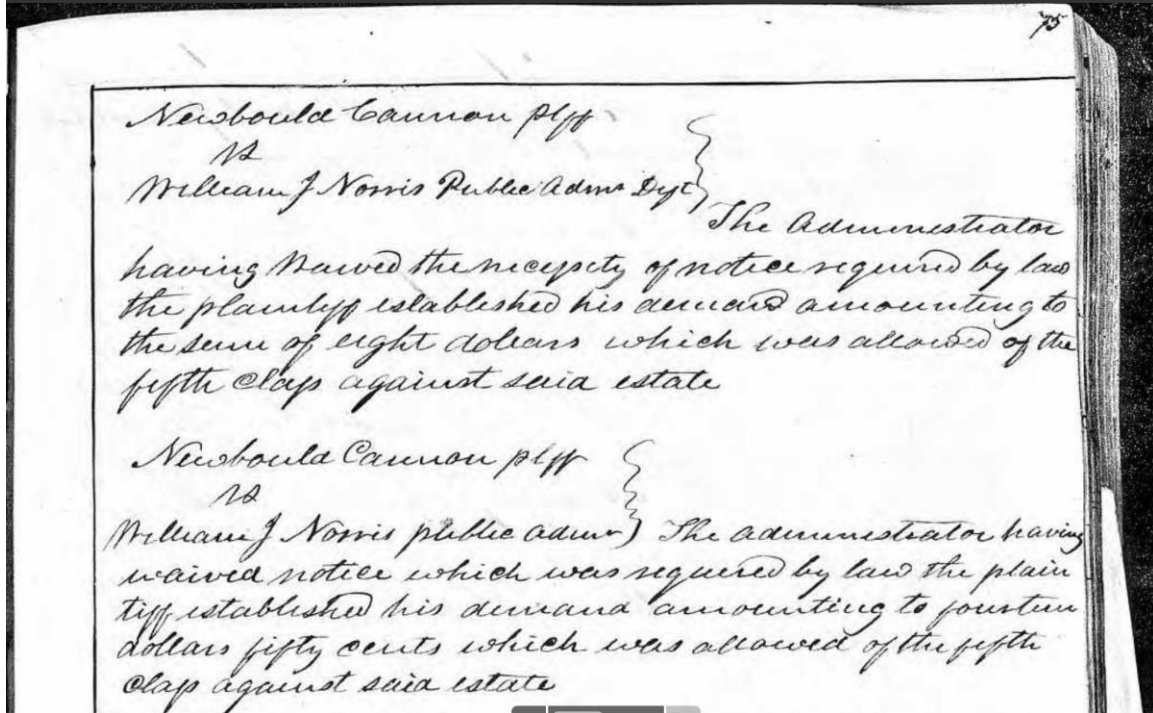 75
Newbould Cannon plff
vs
William J Norris Public Admr Dft
The Administrator
having waived the necessity of notice required by law
the plaintiff established his demand amounting to
the sum of eight dollars which was allowed of the
fifth class against said estate
Newbould Cannon plff
vs
William J Norris public admr The administrator having
waived notice which was required by law the plain
tiff established his demand amounting to fourteen
dollars fifty cents which was allowed of the fifth
class against said estate